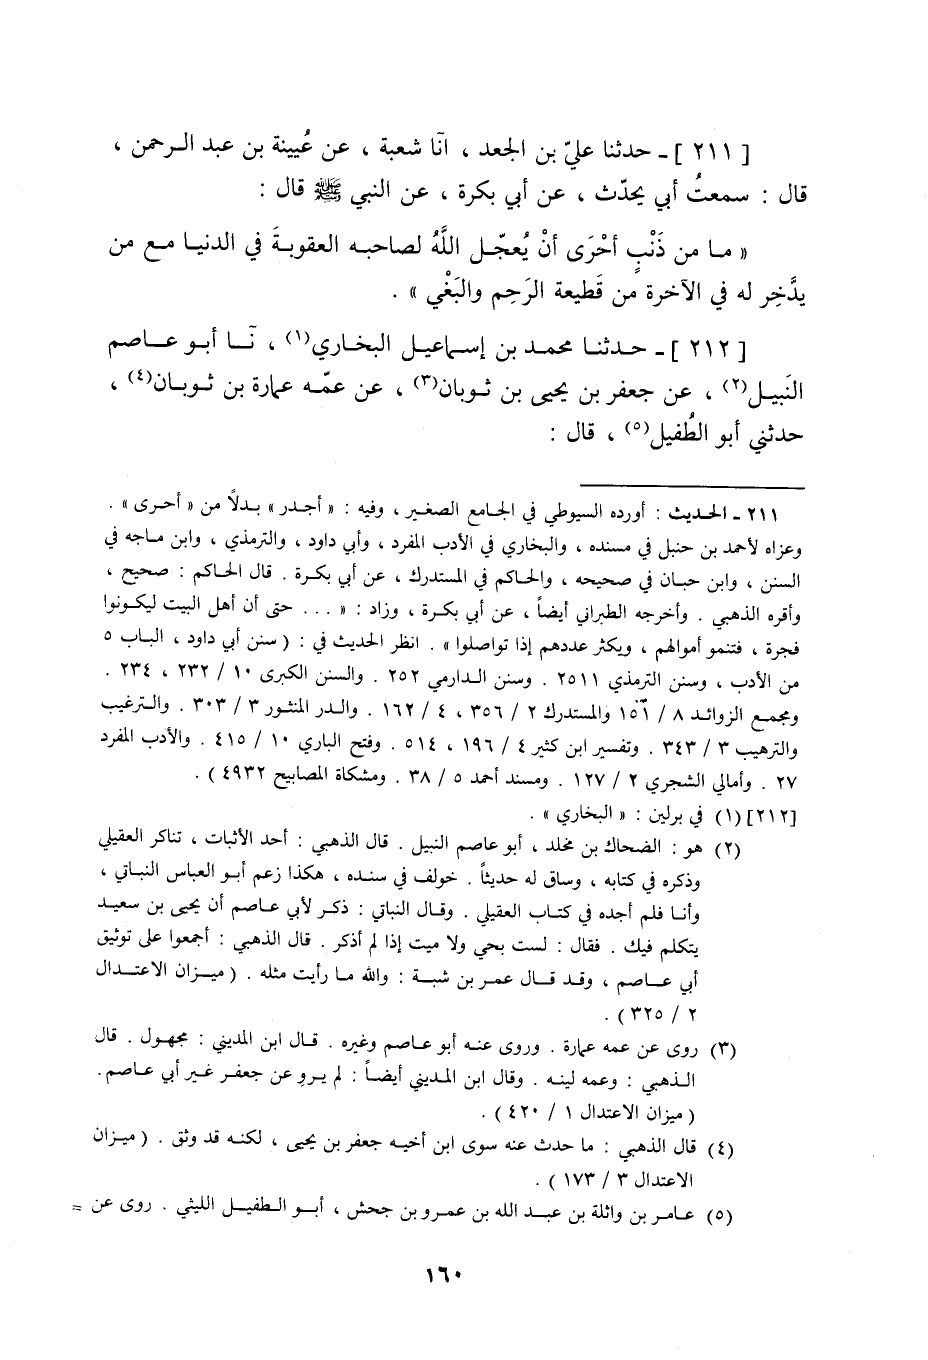 [ ٢١١ ] ـ حدثنا عليّ بن الجعد ، انّا شعبة ، عن عُيينة بن عبد الرحمن ،
قال : سمعتُ أبي يحدّث ، عن أبي بكرة ، عن النبي ﷺ قال :
« ما من ذَنْبٍ أحْرَى أنْ يُعجّل اللَّهُ لصاحبه العقوبةَ في الدنيا مع من
يدَّخِر له في الآخرة من قَطيعة الرَحِم والبَغْي » .
[ ٢١٢ ] ـ حدثنا محمد بن إسماعيل البخاري(١) ، نَّا أبو عاصم
النَبيل(٢) ، عن جعفر بن يحيى بن ثوبان(٣) ، عن عمّه عمارة بن ثوبان(٤) ،
حدثني أبو الطُفيل(٥) ، قال :
٢١١ ـ الحديث : أورده السيوطي في الجامع الصغير ، وفيه : « أجدر » بدلاً من « أحرى » .
وعزاه لأحمد بن حنبل في مسنده ، والبخاري في الأدب المفرد ، وأبي داود ، والترمذي ، وابن ماجه في
السنن ، وابن حبان في صحيحه ، والحاكم في المستدرك ، عن أبي بكرة . قال الحاكم : صحيح ،
وأقره الذهبي . وأخرجه الطبراني أيضاً ، عن أبي بكرة ، وزاد : « ... حتى أن أهل البيت ليكونوا
فجرة ، فتنمو أموالهم ، ويكثر عددهم إذا تواصلوا » . انظر الحديث في : ( سنن أبي داود ، الباب ٥
من الأدب ، وسنن الترمذي ٢٥١١ . وسنن الدارمي ٢٥٢ . والسنن الكبرى ١٠ / ٢٣٢ ، ٢٣٤ .
ومجمع الزوائد ٨ / ١٥١ والمستدرك ٢ / ٣٥٦ ، ٤ / ١٦٢ . والدر المنثور ٣ / ٣٠٣ . والترغيب
والترهيب ٣ / ٣٤٣ . وتفسير ابن كثير ٤ / ١٩٦ ، ٥١٤ . وفتح الباري ١٠ / ٤١٥ . والأدب المفرد
٢٧ . وأمالي الشجري ٢ / ١٢٧ . ومسند أحمد ٥ / ٣٨ . ومشكاة المصابيح ٤٩٣٢ ) .
[٢١٢] (١) في برلين : « البخاري » .
(٢) هو : الضحاك بن مخلد ، أبو عاصم النبيل . قال الذهبي : أحد الأثبات ، تناكر العقيلي
وذكره في كتابه ، وساق له حديثاً . خولف في سنده ، هكذا زعم أبو العباس النباتي ،
وأنا فلم أجده في كتاب العقيلي . وقال النباتي : ذكر لأبي عاصم أن يحيى بن سعيد
يتكلم فيك . فقال : لست بحي ولا ميت إذا لم أذكر . قال الذهبي : أجمعوا على توثيق
أبي عاصم ، وقد قال عمر بن شبة : والله ما رأيت مثله . ( ميزان الاعتدال
٢ / ٣٢٥ ) .
(٣) روى عن عمه عمارة . وروى عنه أبو عاصم وغيره . قال ابن المديني : مجهول . قال
الذهبي : وعمه لينه . وقال ابن المديني أيضاً : لم يرو عن جعفر غير أبي عاصم .
( ميزان الاعتدال ١ / ٤٢٠ ) .
(٤) قال الذهبي : ما حدث عنه سوى ابن أخيه جعفر بن يحيى ، لكنه قد وثق . ( ميزان
الاعتدال ٣ / ١٧٣ ) .
(٥) عامر بن واثلة بن عبد الله بن عمرو بن جحش ، أبو الطفيل الليثي . روى عن =
١٦٠